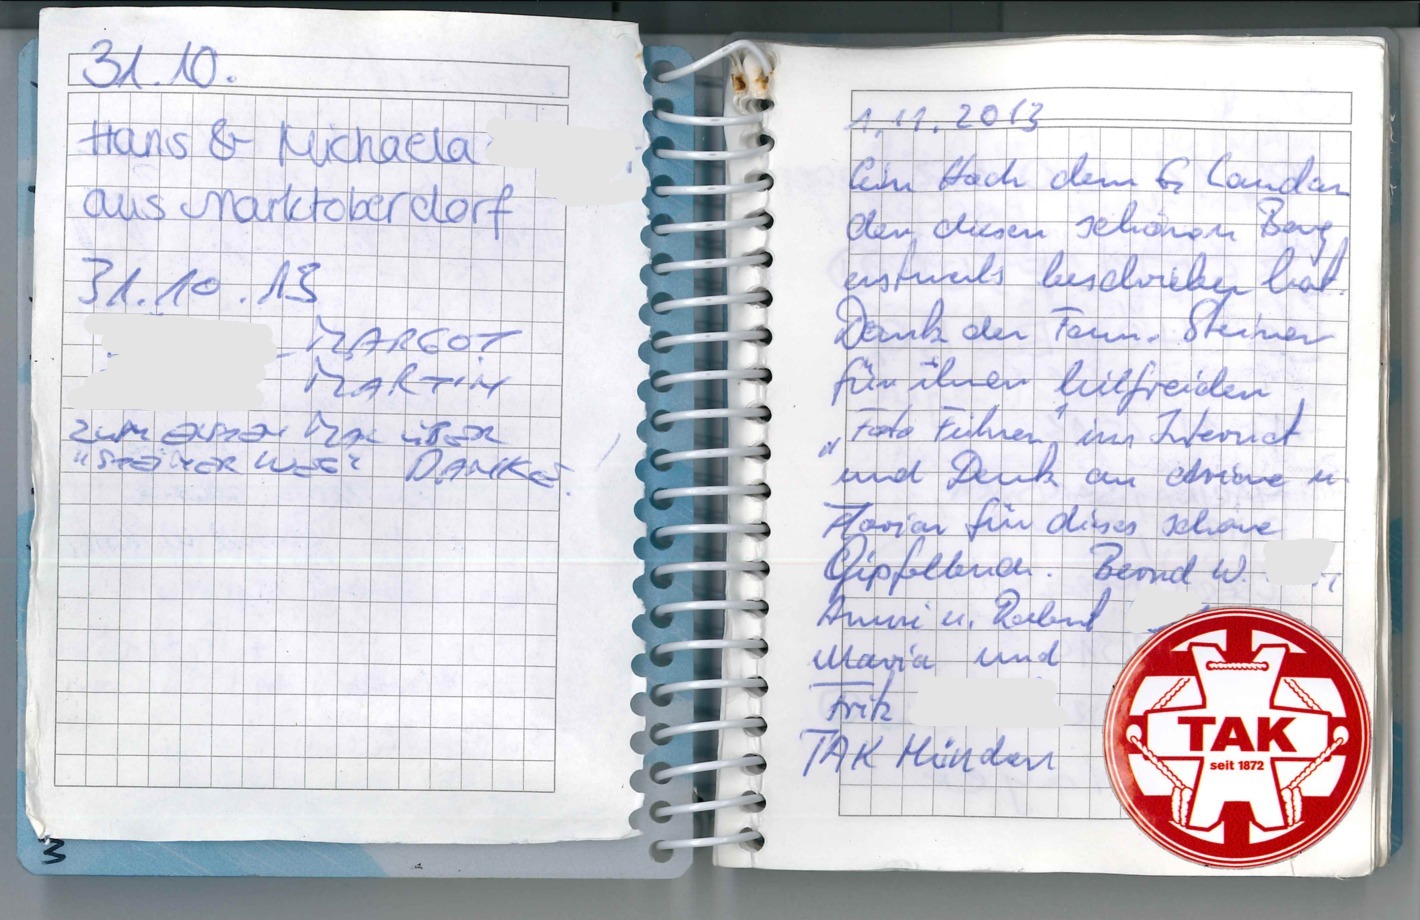 31.10.
Hans & Michaela
aus Marktoberdorf
31.10.13
MARGOT
MARTIN
ZUM ERSTEN MAL ÜBER
"STEINER WEG" DANKE.
1.11.2013
Ein Hoch dem G Landan
der diesen schönen Berg
erstmals beschrieben hat.
Dank der Fam. Steiner
für ihren hilfreichen
"Foto Führer" im Internet
und Dank an u.
Florian für dieses schöne
Gipfelbuch. Bernd W.
Anni u. Robert
Maria und
Fritz
TAK München
TAK
seit 1872
3